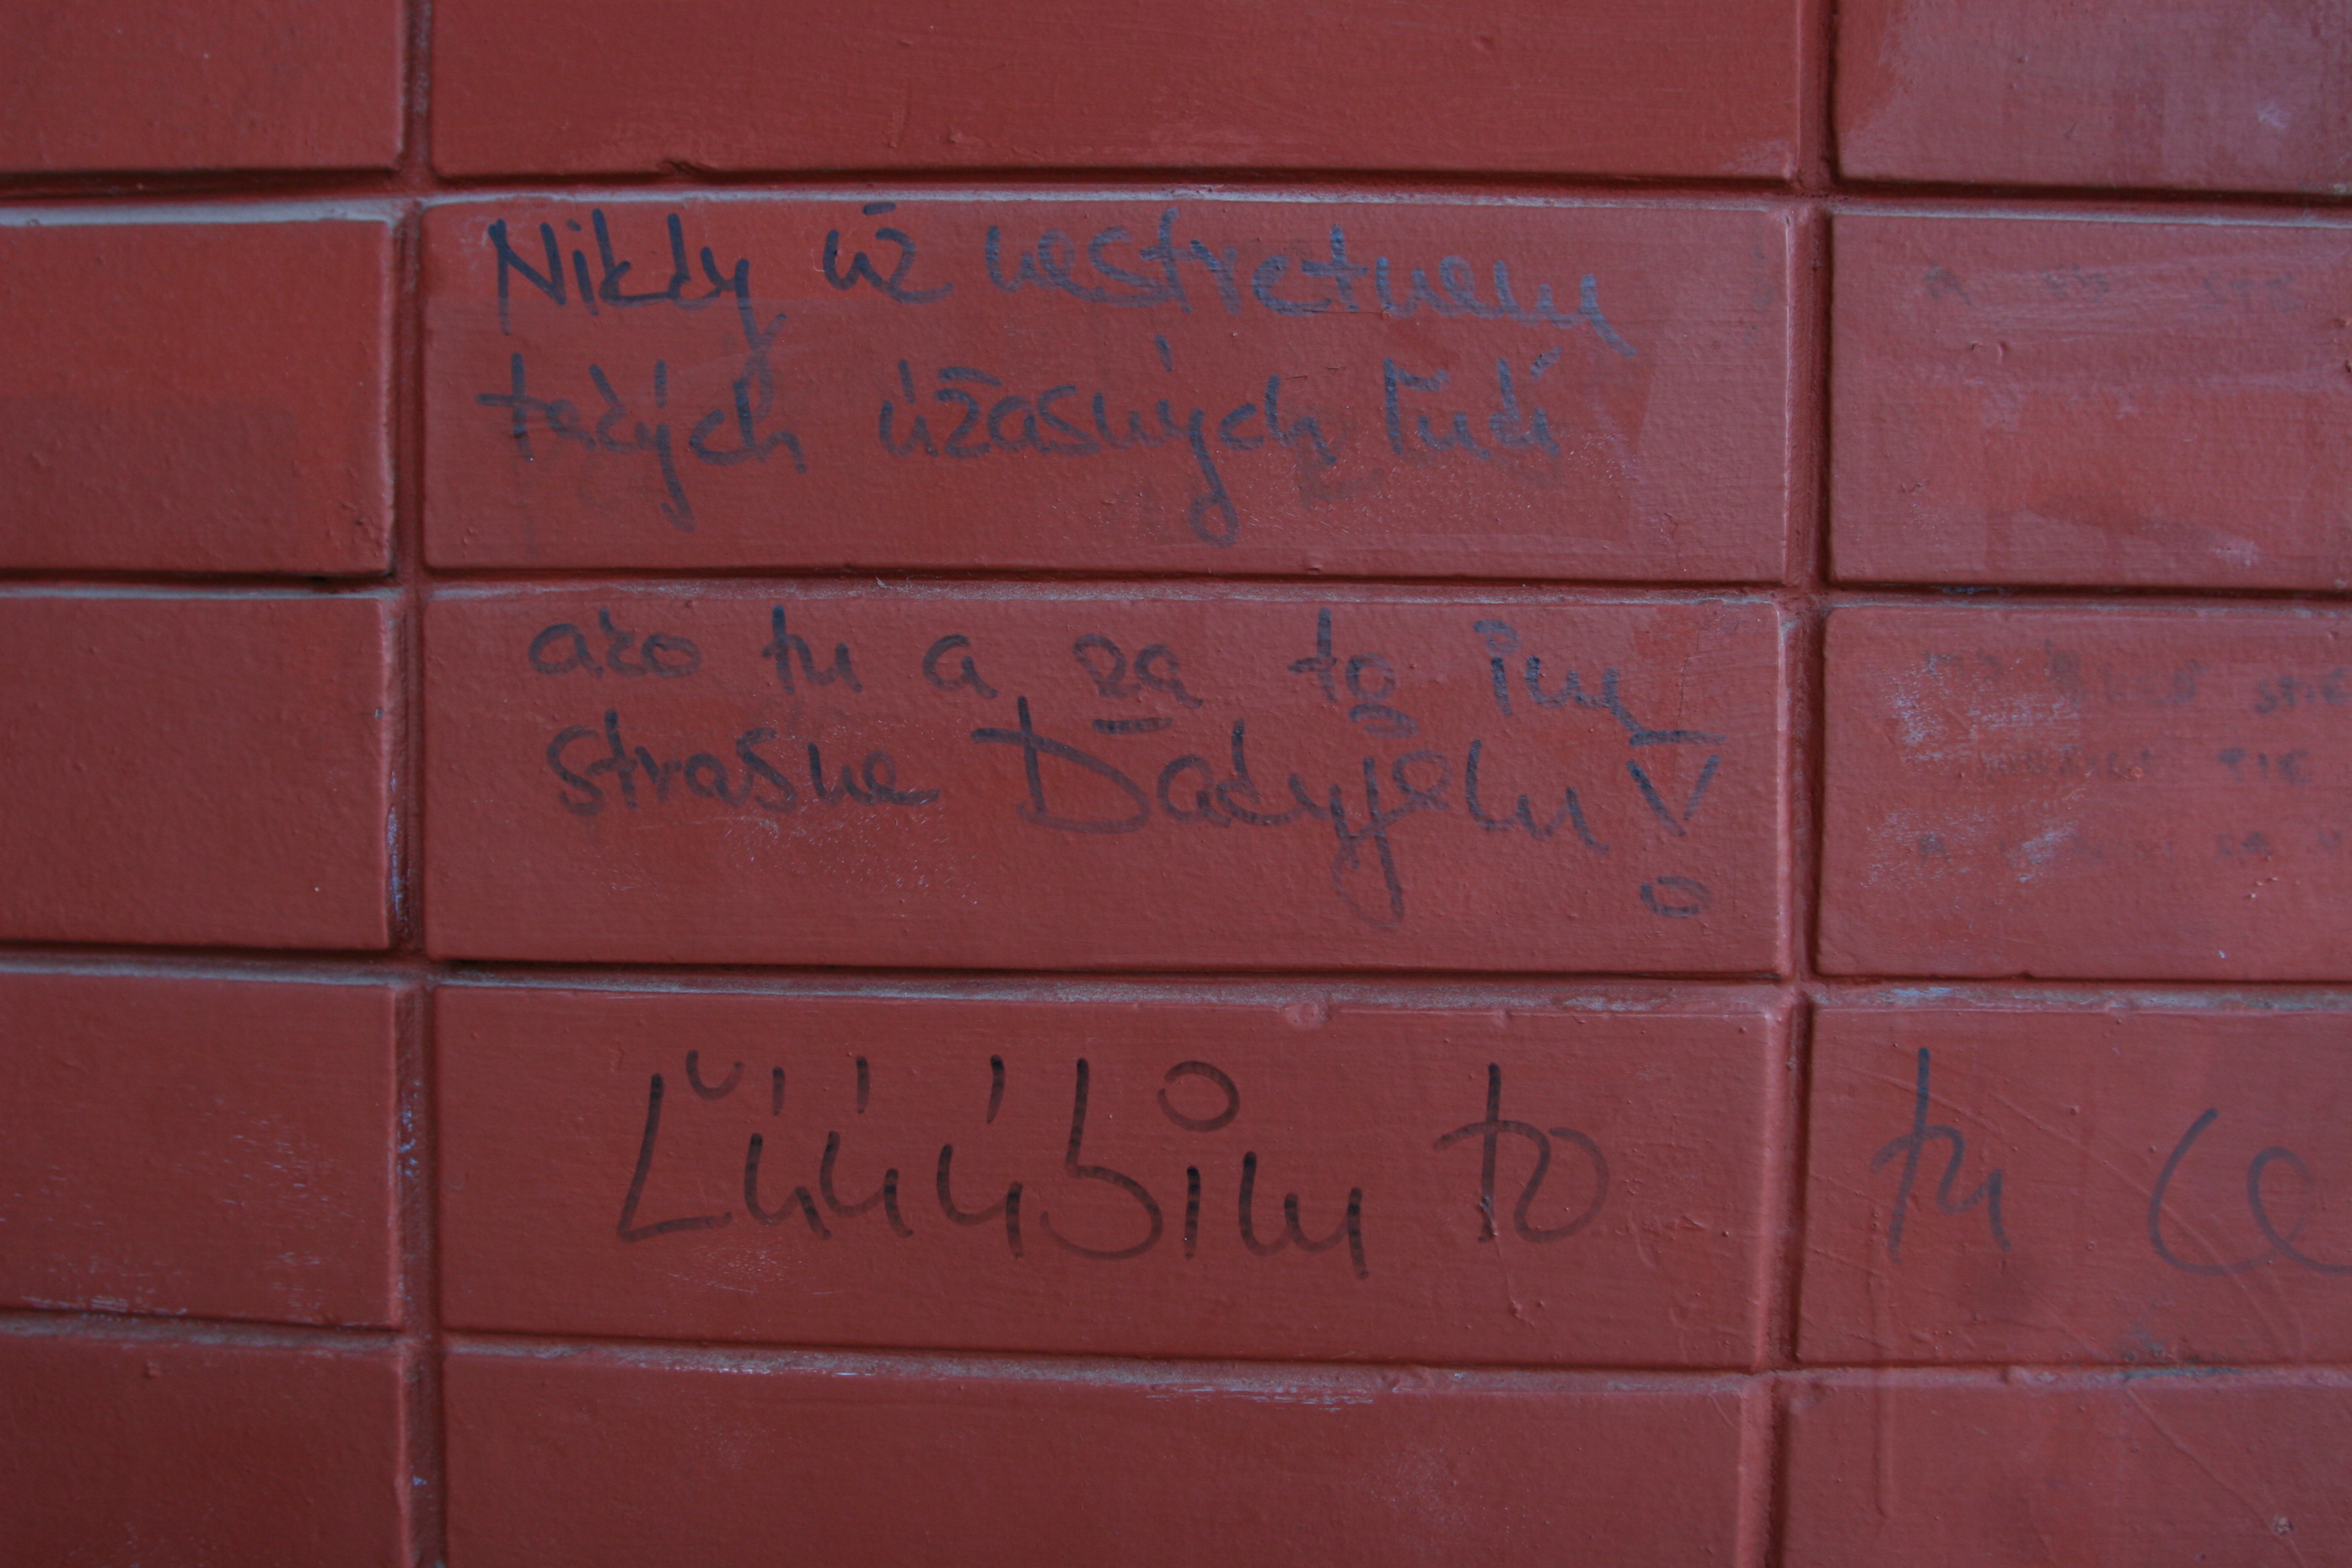 Nikdy už nestretnem
takých úžasných ľudí
ako tu a za to im
strašne Ďakujem!
Ľúúúbim to tu